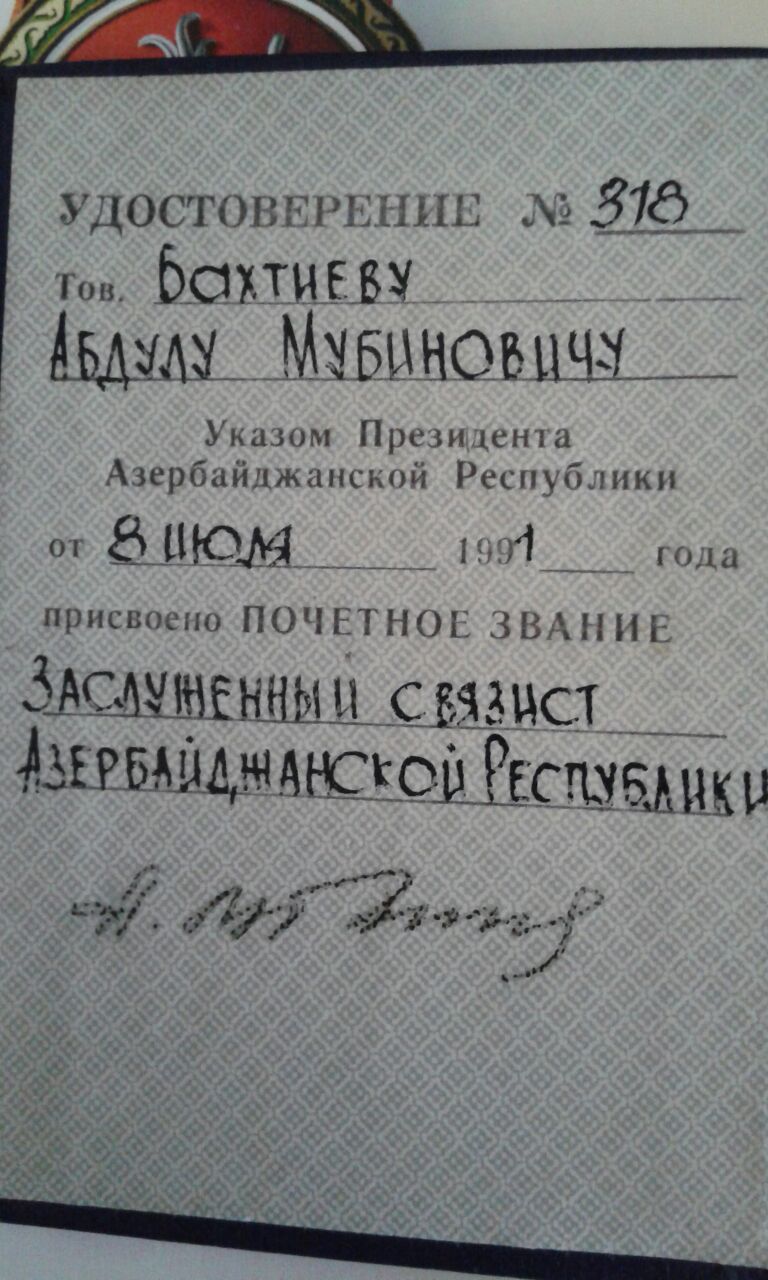 УДОСТОВЕРЕНИЕ № 318
Тов. Бахтиеву
Абдулу Мубиновичу
Указом Президента
Азербайджанской Республики
от 8 июля 1991 года
присвоено ПОЧЕТНОЕ ЗВАНИЕ
Заслуженный связист
Азербайджанской Республики